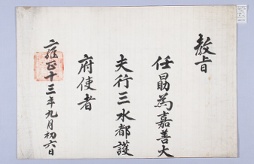 教旨
任勗為嘉善大
夫行三水都護
府使者
雍正十三年九月初六日